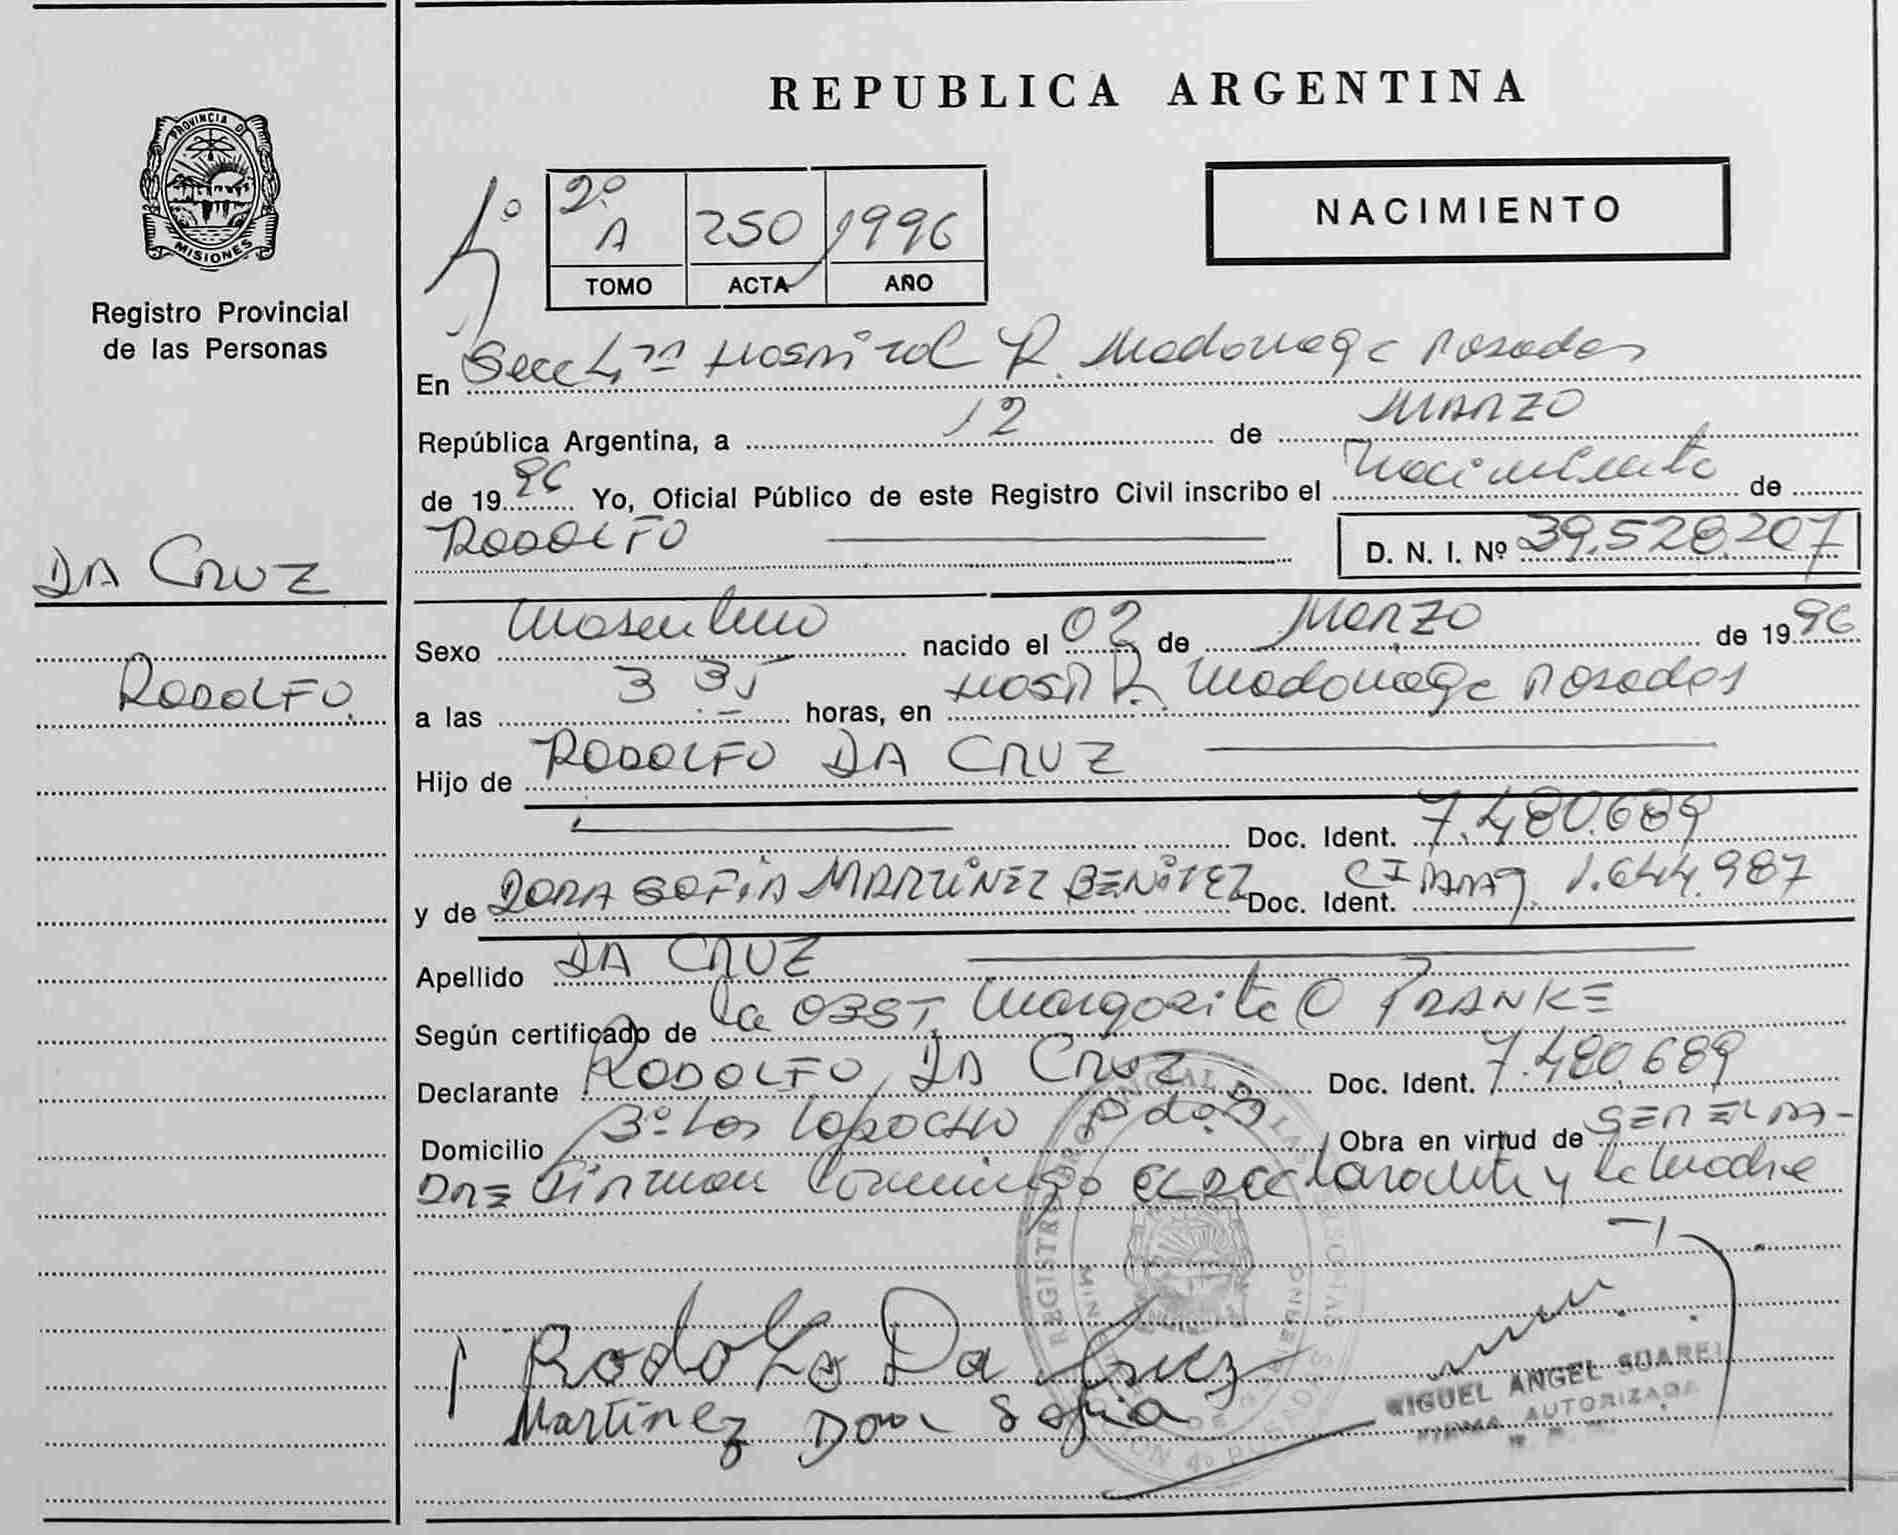 REPUBLICA ARGENTINA
PROVINCIA DE
MISIONES
Registro Provincial
de las Personas
2º A 250 1996
TOMO ACTA AÑO
NACIMIENTO
En Secc 4ta Hospital R. Madariaga Posadas
República Argentina, a 12 de MARZO
de 1996 Yo, Oficial Público de este Registro Civil inscribo el Nacimiento de
RODOLFO D. N. I. Nº 39.528.207
DA CRUZ
RODOLFO
Sexo Masculino nacido el 02 de Marzo de 1996
a las 3 35 horas, en Hosp R. Madariaga Posadas
Hijo de RODOLFO DA CRUZ
Doc. Ident. 7.480.689
y de DORA SOFIA MARTINEZ BENITEZ Doc. Ident. CI 1.644.987
Apellido DA CRUZ
Según certificado de la OBST Margarita PRANKE
Declarante RODOLFO DA CRUZ Doc. Ident. 7.480.689
Domicilio Lapacho Pdas Obra en virtud de SER EL PA-
DRE Firman Conmigo el declarante y la madre
Rodolfo Da Cruz
Martinez Dora Sofia
MIGUEL ANGEL SUAREZ
FIRMA AUTORIZADA